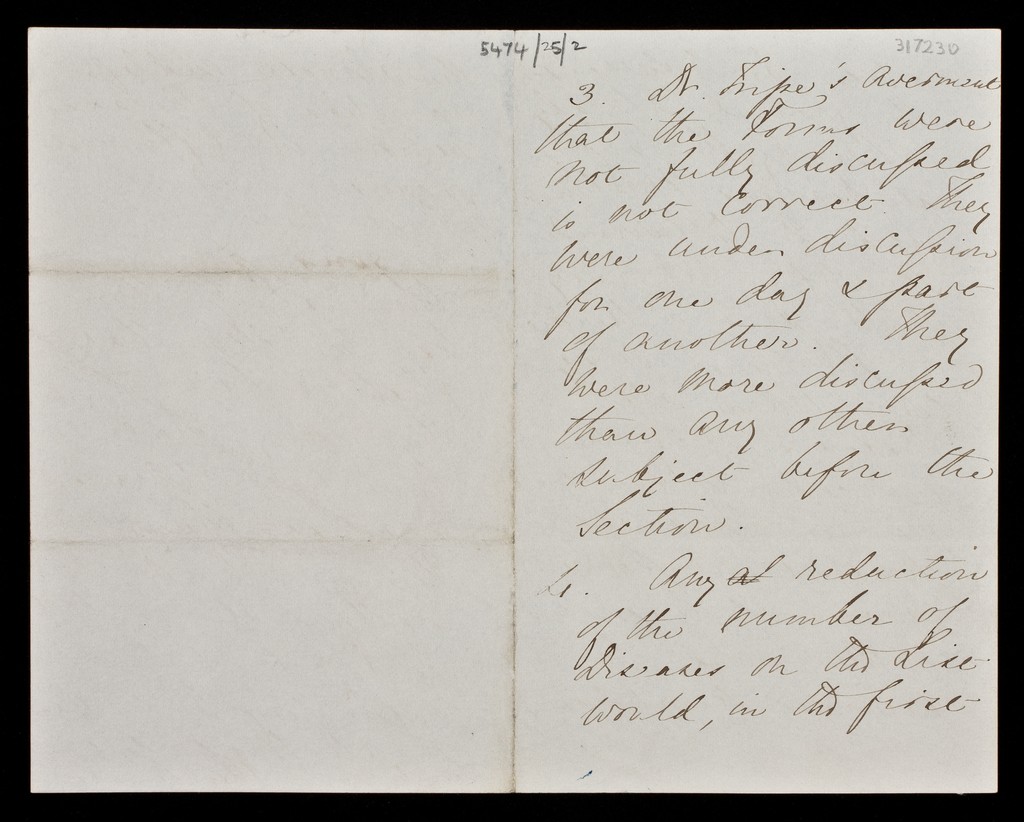 5474/25/2
317230
3. Dr. Tripe's averment
that the Forms were
not fully discussed
is not correct. They
were under discussion
for one day & part
of another. They
were more discussed
than any other
subject before the
Section.
4. Any reduction
of the number of
Diseases on the List
would, in the first